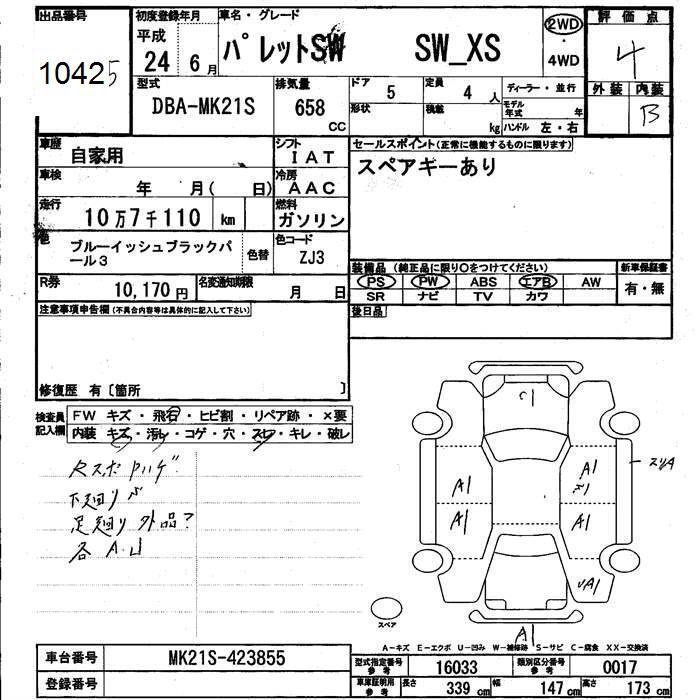 出品番号
10425
初度登録年月
平成
24年 6月
車名・グレード
パレットSW SW_XS
2WD
・
4WD
評価点
4
外装 内装
B
型式
DBA-MK21S
排気量
658
CC
ドア
5
定員
4 人
形状
積載
kg
ディーラー・並行
モデル年式 年
ハンドル 左・右
車歴
自家用
シフト
IAT
車検
年 月( 日)
冷房
AAC
走行
10万7千110 km
燃料
ガソリン
色
ブルーイッシュブラックパ
ール3
色替
色コード
ZJ3
R券
10,170円
名変通知期限
月 日
セールスポイント(正常に機能するものに限ります)
スペアキーあり
装備品(純正品に限り○をつけてください)
新車保証書
PS PW ABS エアB AW
有・無
SR ナビ TV カワ
後日品
注意事項申告欄(不具合内容等は具体的に記入して下さい)
修復歴 有〔箇所 〕
検査員
記入欄
FW キズ・飛石・ヒビ割・リペア跡・×要
内装 キズ・汚レ・コゲ・穴・スレ・キレ・破レ
下廻りサ
足廻り 外品?
各A.U
A1
A1
A1
A1
A1
A1
スペア
A-キズ E-エクボ U-凹み W-補修跡 S-サビ C-腐食 XX-交換済
車台番号
MK21S-423855
登録番号
型式指定番号
参考
16033
類別区分番号
参考
0017
車庫証明用
参考
長さ 339 cm
幅 147 cm
高さ 173 cm